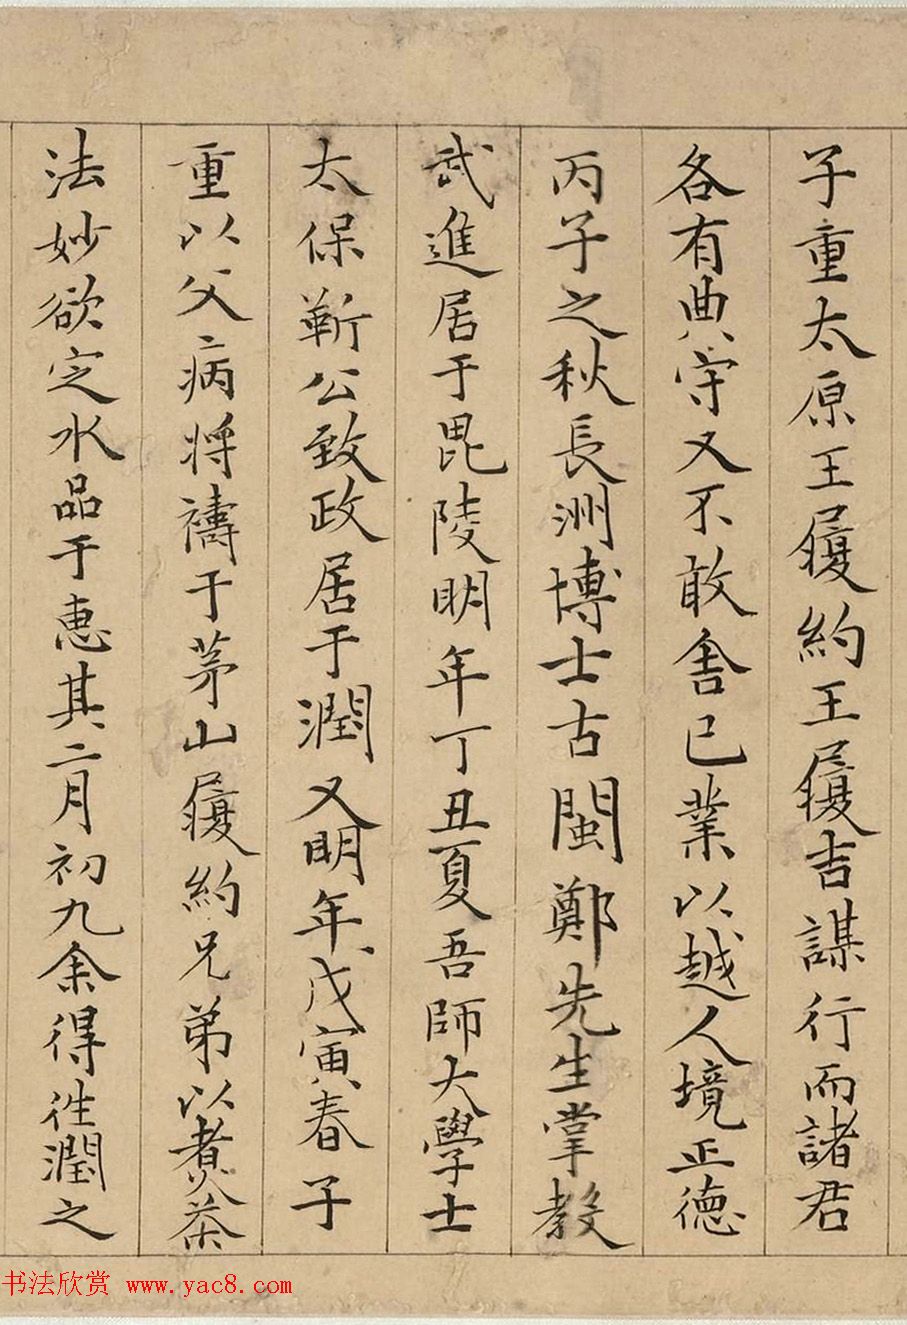 子重太原王履約王履吉謀行而諸君
各有典守又不敢舍已業以越人境正德
丙子之秋長洲博士古閩鄭先生掌教
武進居于毘陵明年丁丑夏吾師大學士
太保靳公致政居于潤又明年戊寅春子
重以父病将禱于茅山履約兄弟以煮茶
法妙欲定水品于惠其二月初九余得往潤之
书法欣赏 www.yac8.com